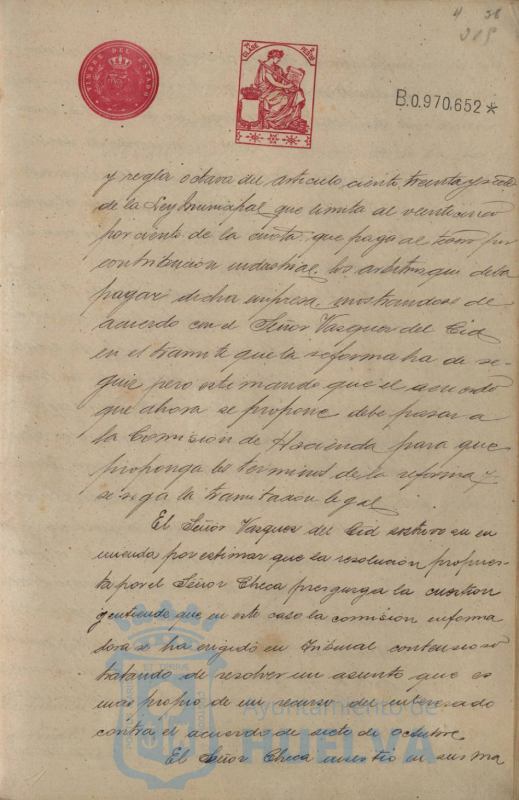 4 58
TIMBRE DEL ESTADO
CLASE
B.0.970,652*
y regla octava del articulo ciento treinta y siete
de la Ley Municipal que limita al veinticinco
por ciento de la cuota, que paga al tesoro por
contribucion industrial, los arbitrios que deba
pagar dicha empresa, mostrandose de
acuerdo con el Señor Vazquez del Cid
en el tramite que la reforma ha de se-
guir pero estimando que el acuerdo
que ahora se propone debe pasar a
la Comision de Hacienda para que
proponga los terminos de la reforma y
se siga la tramitacion legal
El Señor Vazquez del Cid sostuvo su en
mienda por estimar que la resolución propues
ta por el Señor Checa prejuzga la cuestion
y entiende que en este caso la comision informa
dora se ha erigido en Tribunal contencioso
tratando de resolver un asunto que es
mas propio de un recurso del interesado
contra el acuerdo de siete de octubre.
El Señor Checa insistió en sus ma
Ayuntamiento de
HUELVA